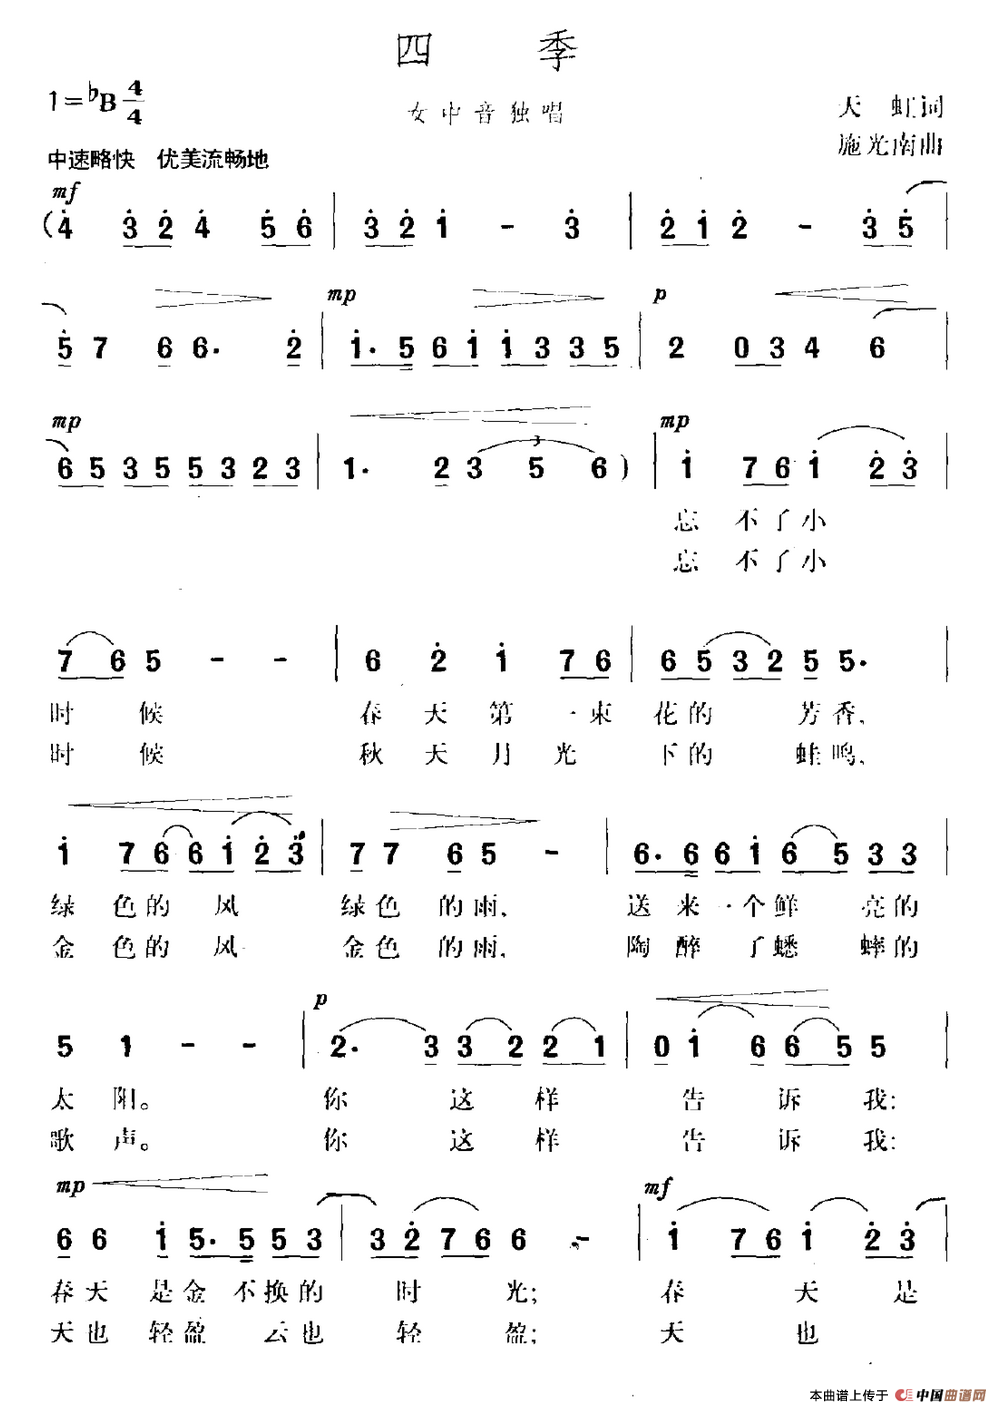 四季
1=♭B 4/4
女中音独唱
天虹词
施光南曲
中速略快 优美流畅地
mf
(4 3 2 4 5 6 | 3 2 1 - 3 | 2 1 2 - 3 5 |
mp p
5 7 6 6. 2 | 1. 5 6 1 1 3 3 5 | 2 0 3 4 6 |
mp 3 mp
6 5 3 5 5 3 2 3 | 1. 2 3 5 6 ) | 1 7 6 1 2 3 |
忘不了小
忘不了小
7 6 5 - - | 6 2 1 7 6 | 6 5 3 2 5 5. |
时候 春天第一束花的芳香,
时候 秋天月光下的蛙鸣,
1 7 6 6 1 2 3 | 7 7 6 5 - | 6. 6 6 1 6 5 3 3 |
绿色的风 绿色的雨, 送来一个鲜亮的
金色的风 金色的雨, 陶醉了蟋蟀的
p
5 1 - - | 2. 3 3 2 2 1 | 0 1 6 6 5 5 |
太阳。 你这样告诉我:
歌声。 你这样告诉我:
mp mf
6 6 1 5. 5 5 3 | 3 2 7 6 6 - | 1 7 6 1 2 3 |
春天是金不换的时光; 春天是
天也轻盈云也轻盈; 天也
本曲谱上传于 中国曲谱网